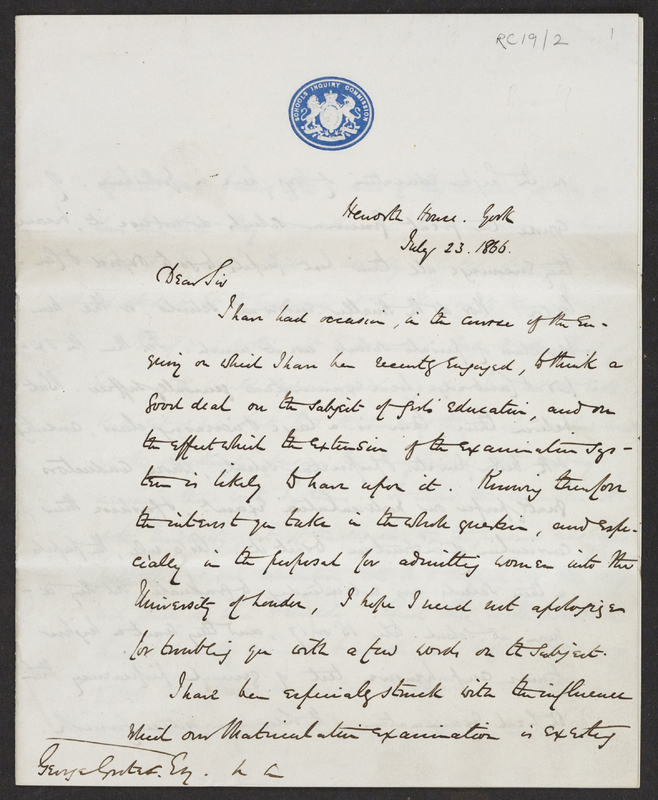 RC19/2
1
SCHOOLS INQUIRY COMMISSION
Heworth House. York
July 23. 1866.
Dear Sir
I have had occasion, in the course of the En-
quiry on which I have been recently engaged, to think a
good deal on the subject of girls' education, and on
the effect which the extension of the examination sys-
tem is likely to have upon it. Knowing therefore
the interest you take in the whole question, and espe-
cially in the proposal for admitting women into the
University of London, I hope I need not apologize
for troubling you with a few words on the subject.
I have been especially struck with the influence
which our Matriculation Examination is exerting
George Grote Esq.